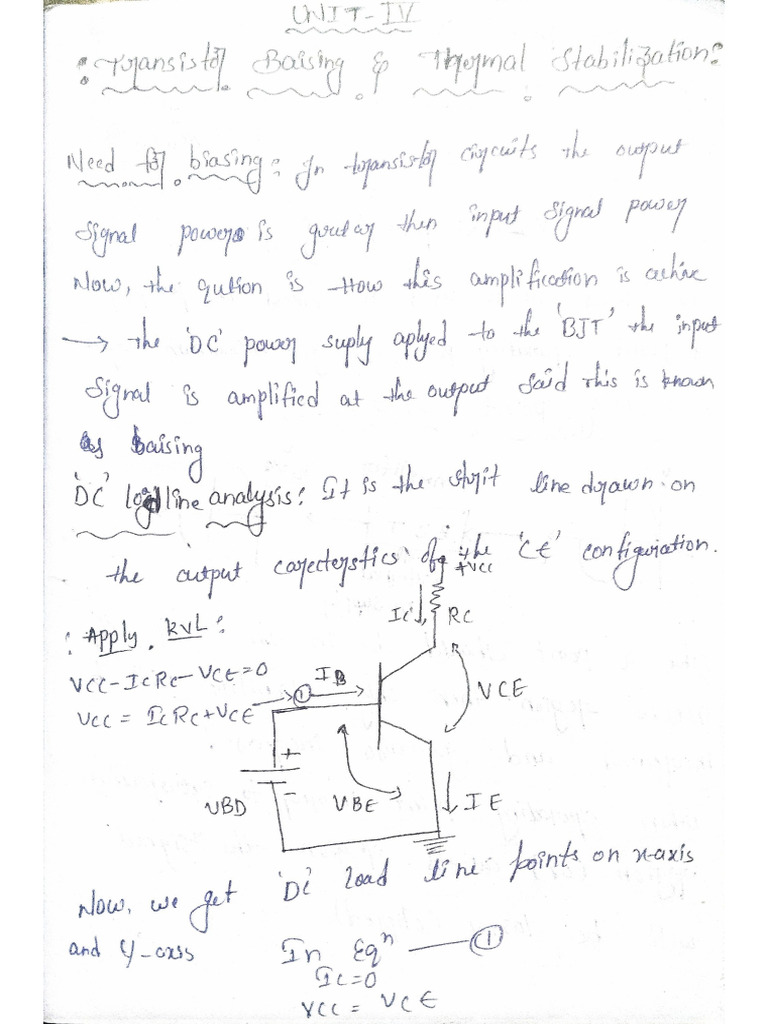 UNIT-IV
: Transistor Baising & Thermal Stabilization:
Need for biasing: In transistor circuits the output
signal power is greater then input signal power
Now, the qution is How this amplification is achive
→ the 'DC' power suply aplyed to the 'BJT' the input
signal is amplified at the output said this is known
as baising
'DC' load line analysis: It is the strit line drawn on
the output carecterstics of the 'CE' configuration.
+VCC
IC RC
: Apply KVL:
VCC-ICRC-VCE=0
VCC = ICRC+VCE → ① IB
VCE
VBD VBE IE
Now, we get 'DC' load line points on x-axis
and y-axis In Eqn — ①
IC=0
VCC = VCE